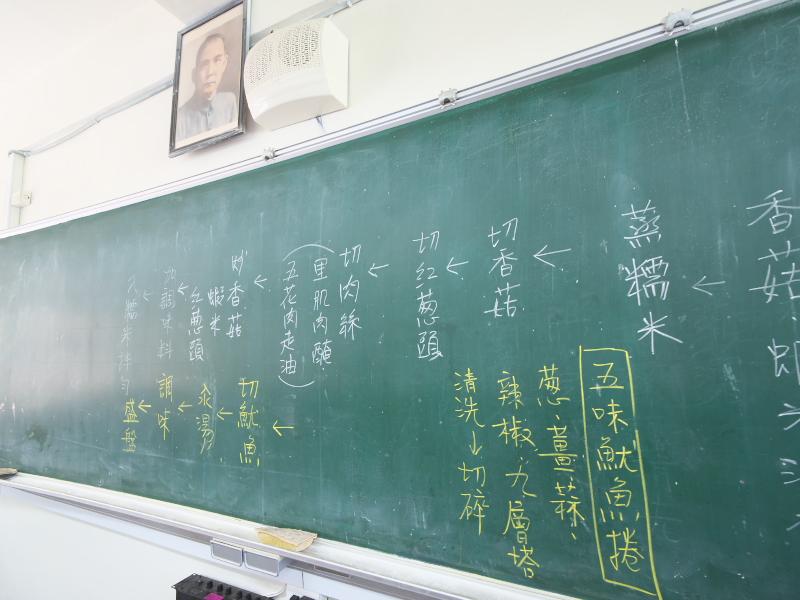 香菇、蝦米
←
蒸糯米
←
切香菇
←
切紅蔥頭
←
切肉絲
(里肌肉醃
五花肉走油)
←
炒香菇
蝦米
紅蔥頭
←
加調味料
←
糯米拌勻
五味魷魚捲
蔥、薑、蒜、
辣椒、九層塔
清洗→切碎
←
切魷魚
←
汆湯
←
調味
←
盛盤